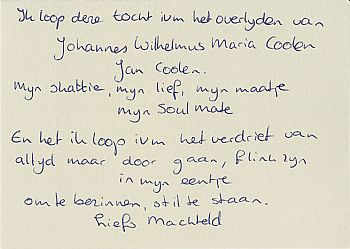 Ik loop deze tocht ivm het overlyden van
Johannes Wilhelmus Maria Coolen
Jan Coolen.
myn shattie, myn lief, myn maatje
myn Soul mate
En het ik loop ivm het verdriet van
altyd maar door gaan, flink zyn
in myn eentje
om te bezinnen, stil te staan.
Liefs Machteld